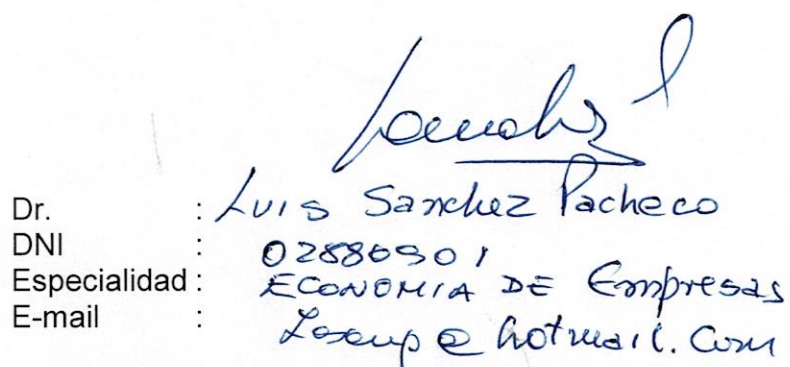 Dr. : Luis Sanchez Pacheco
DNI :
Especialidad : ECONOMIA DE Empresas
E-mail : @ hotmail.com